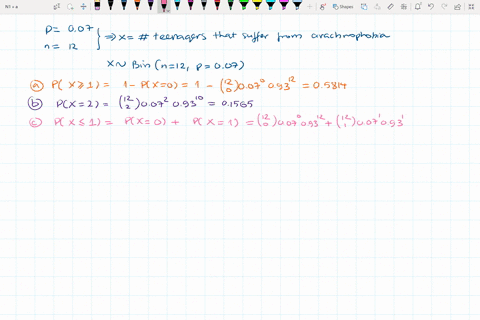 Shapes
P= 0.07
n= 12
⇒ X= # teenagers that suffer from arachnophobia
X~ Bin (n=12, p= 0.07)
a) P( X≥1) = 1 - P(X=0) = 1 - (12 0) 0.07^0 0.93^12 = 0.5814
b) P(X=2) = (12 2) 0.07^2 0.93^10 = 0.1565
c) P( X≤1) = P(X=0) + P( X=1) = (12 0) 0.07^0 0.93^12 + (12 1) 0.07^1 0.93^1